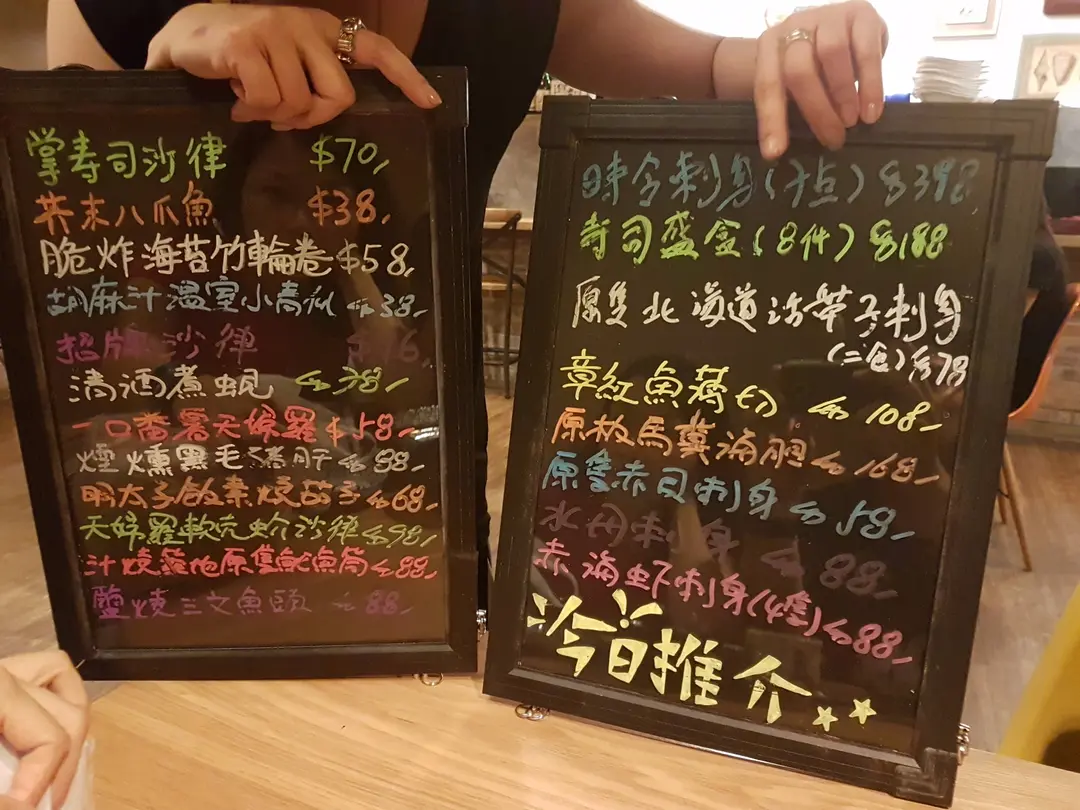 掌寿司沙律 $70,
芥末八爪魚 $38,
脆炸海苔竹輪卷 $58,
胡麻汁溫室小青瓜 $38,
招牌沙律
清酒煮蜆 $78,
一口番薯天婦羅 $58,
煙燻黑毛豬肝 $88,
明太子飯素燒茄子 $68,
天婦羅軟壳蟹沙律 $98,
汁燒 原隻魷魚筒 $88,
鹽燒三文魚頭 $88,
時令刺身(才点) $398
寿司盛盒(8件) $188
原隻北海道活帶子刺身
(二食) $78
章紅魚薄切 $108,
原板馬糞海胆 $168,
原隻赤貝刺身 $58,
水丹刺身 $88,
赤海虾刺身(4隻) $88,
今日推介